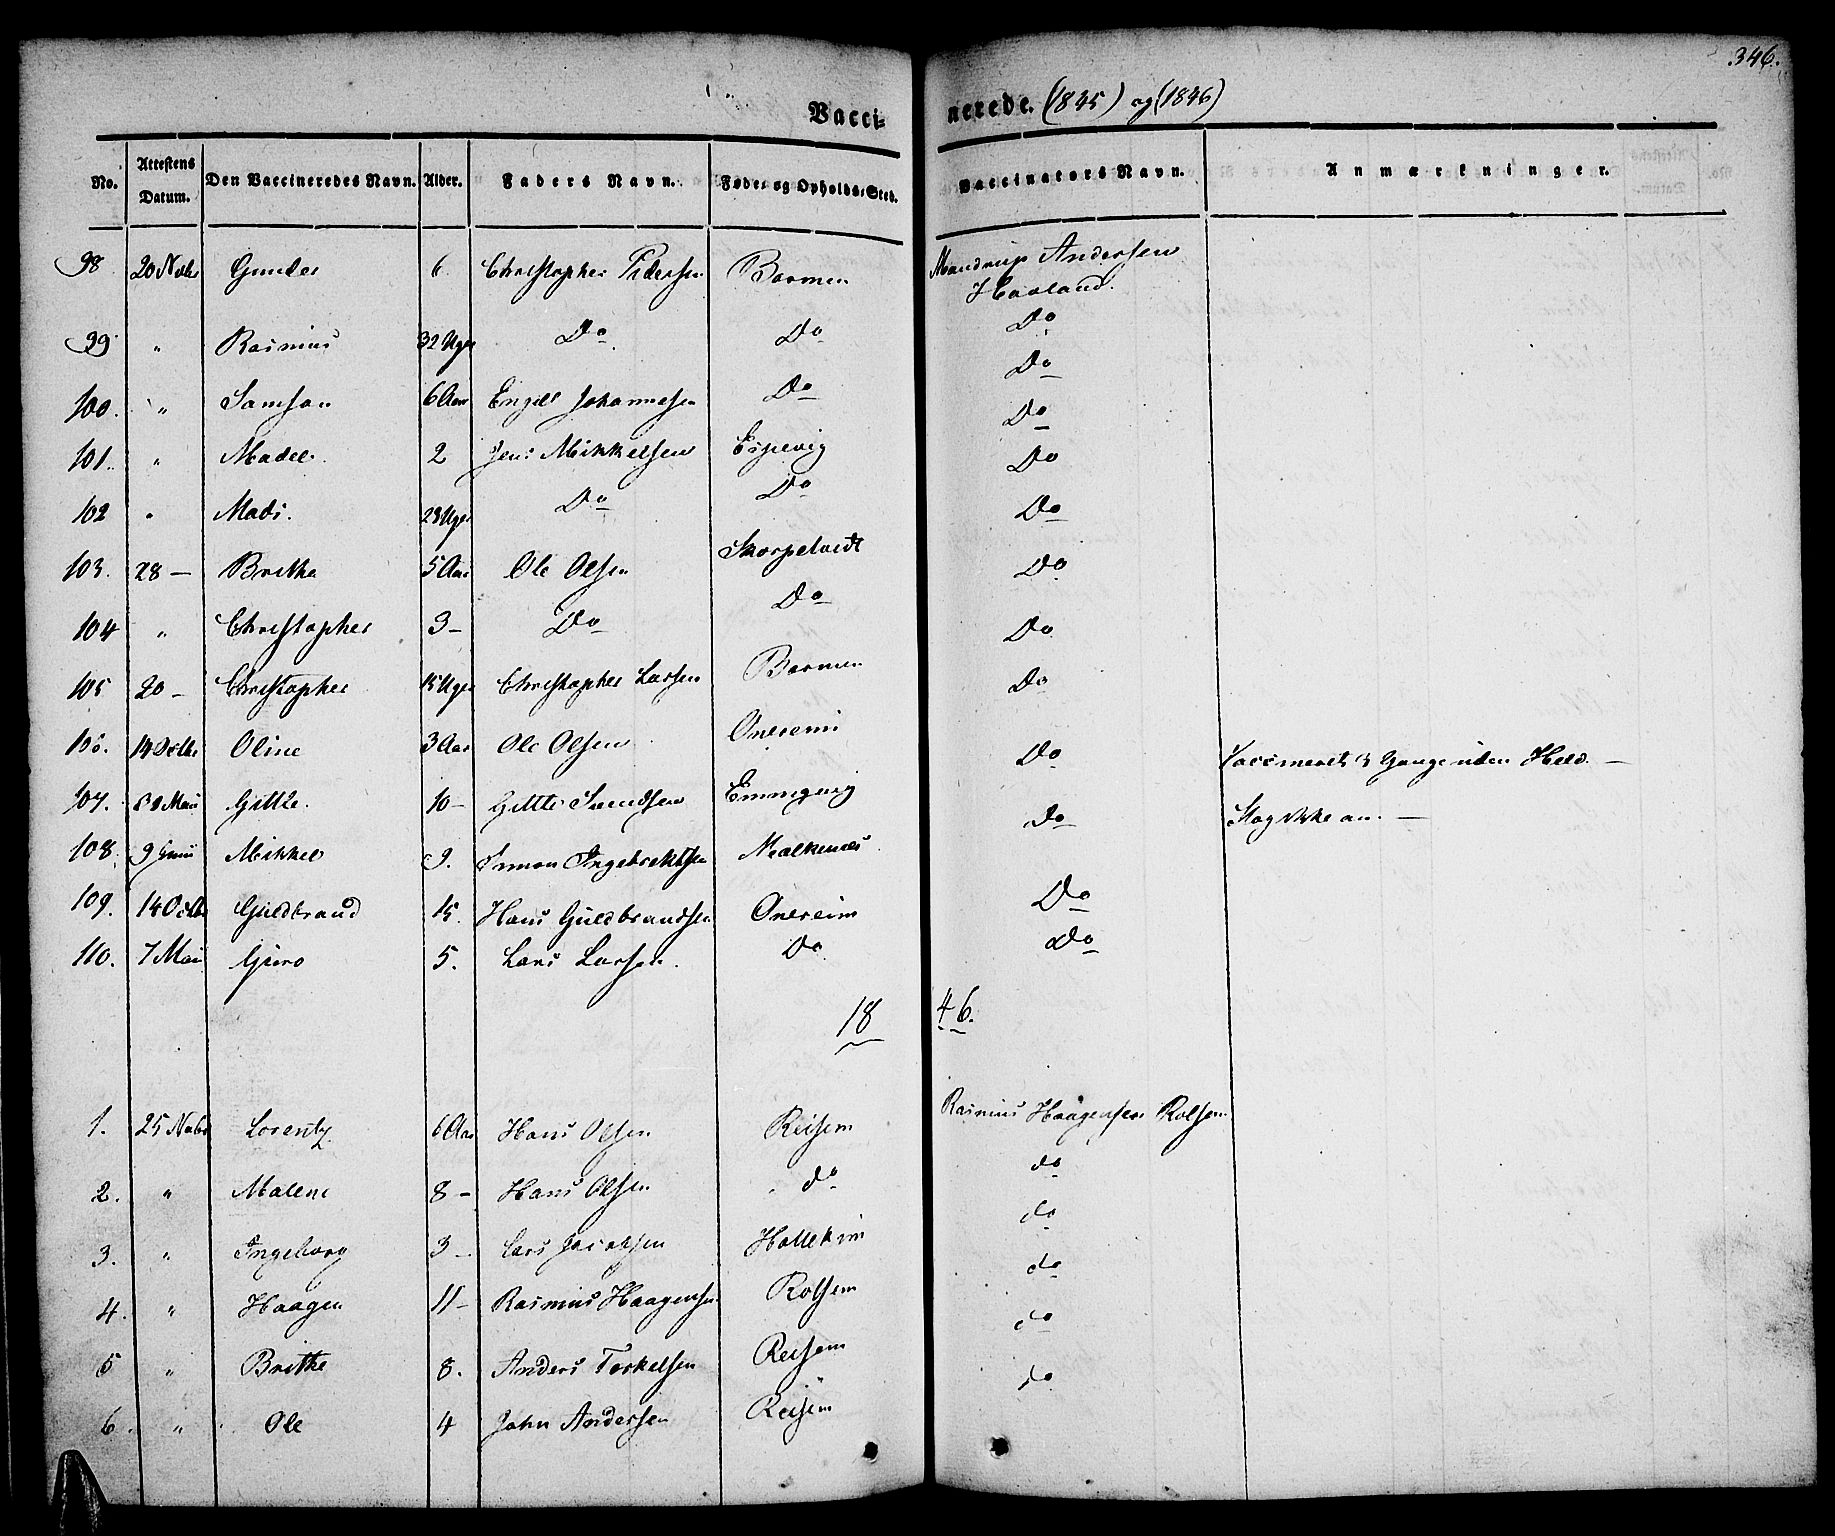 346.
Vaccinerede. (1845) og (1846)
No. Attestens Datum. Den Vaccineredes Navn. Alder. Faders Navn. Føde- og Opholds-Sted. Vaccinators Navn. Anmærkninger.
98 20 Novbr Gunder 6 Christopher Pedersen Barmen Mandrup Andersen
Haaland.
99 " Rasmus 32 Uger Do Do Do
100. " Samson 6 Aar Engel Johannesen Do Do
101. " Madel 2 Jens Mikkelsen Espevig Do
102 " Mads. 28 Uger Do Do Do
103. 28 — Brithe 5 Aar Ole Olsen Do
104 " Christopher 3 — Do Do Do
105 20 — Christopher 15 Uger Christopher Larsen Barmen Do
106. 14 Octbr Oline 3 Aar Ole Olsen Onereim Do Vaccineret 3 Gange uden Held. —
107. Mai Gitte. 10 — Gitte Emmervig do Slog ikke an. —
108. 9 Juni Mikkel 9. Simon Ingebrektsen
109. 14 Octbr Guldbrand 15. Hans Guldbrandsen Onereim Do
110. 7 Mai Guro 5. Lars Larsen. Do Do
1846.
1. 25 Novbr Lorentz 6 Aar Hans Olsen Reisem Rasmus Haagensen Rolsem
2. " Malene 8 — Hans Olsen do do
3. " Ingeborg 3 — Lars Jacobsen Hollekim do
4. " Haagen 11 — Rasmus Haagensen Rolsem do
5 " Brithe 8. Anders Torkelsen Reisem do
6. " Ole 4 John Andersen Reisem do